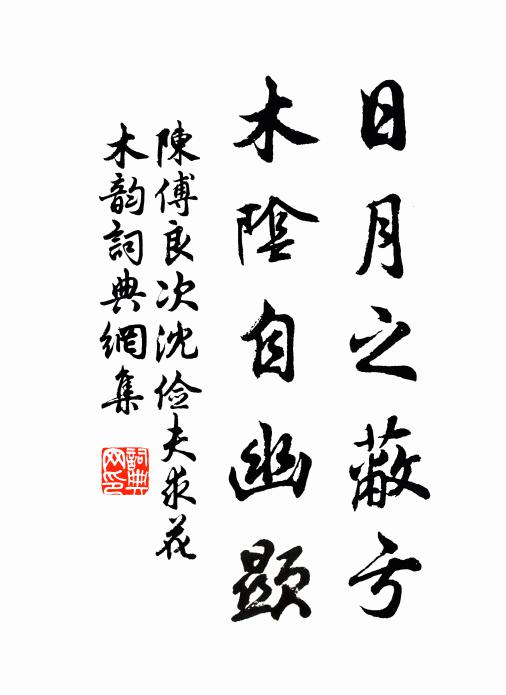 日月之蔽亏
木陰自幽顯
陳傅良次沈俭夫求花
木韵詞典網集
詞典
网印